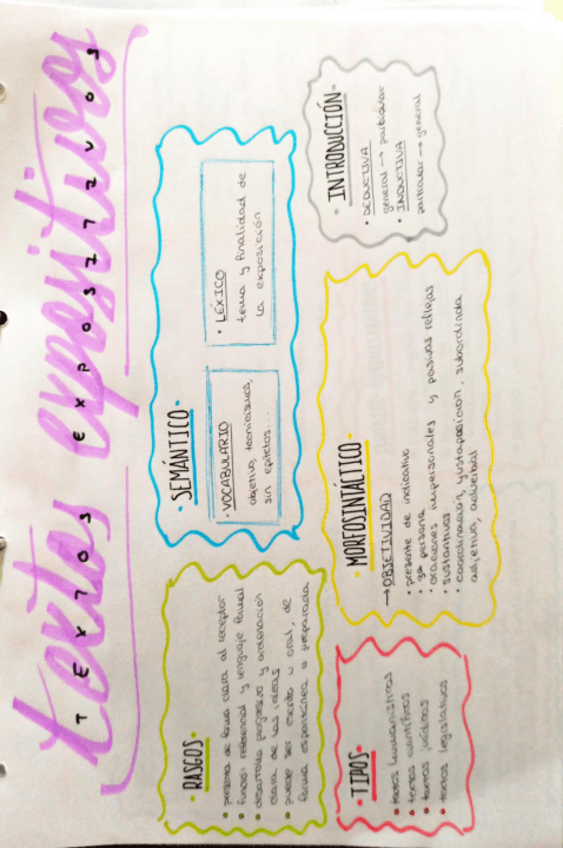 textos expositivos
TEXTOS EXPOSITIVOS
• RASGOS •
• presenta de forma clara al receptor
• función referencial y lenguaje formal
• desarrollo progresivo y ordenación
clara de las ideas
• puede ser escrito u oral, de
forma espontánea o preparada
• SEMÁNTICO •
• VOCABULARIO
objetivo, tecnicismos,
sin epítetos...
• LÉXICO
tema y finalidad de
la exposición.
• TIPOS •
• textos humanísticos
• textos científicos
• textos jurídicos
• textos legislativos
• MORFOSINTÁCTICO •
→ OBJETIVIDAD
• presente de indicativo
• 3ª persona
• oraciones impersonales y pasivas reflejas
• sustantivos
• coordinación, yustaposición, subordinada
adjetiva, adverbial
• INTRODUCCIÓN •
• DEDUCTIVA
general → particular
• INDUCTIVA
particular → general